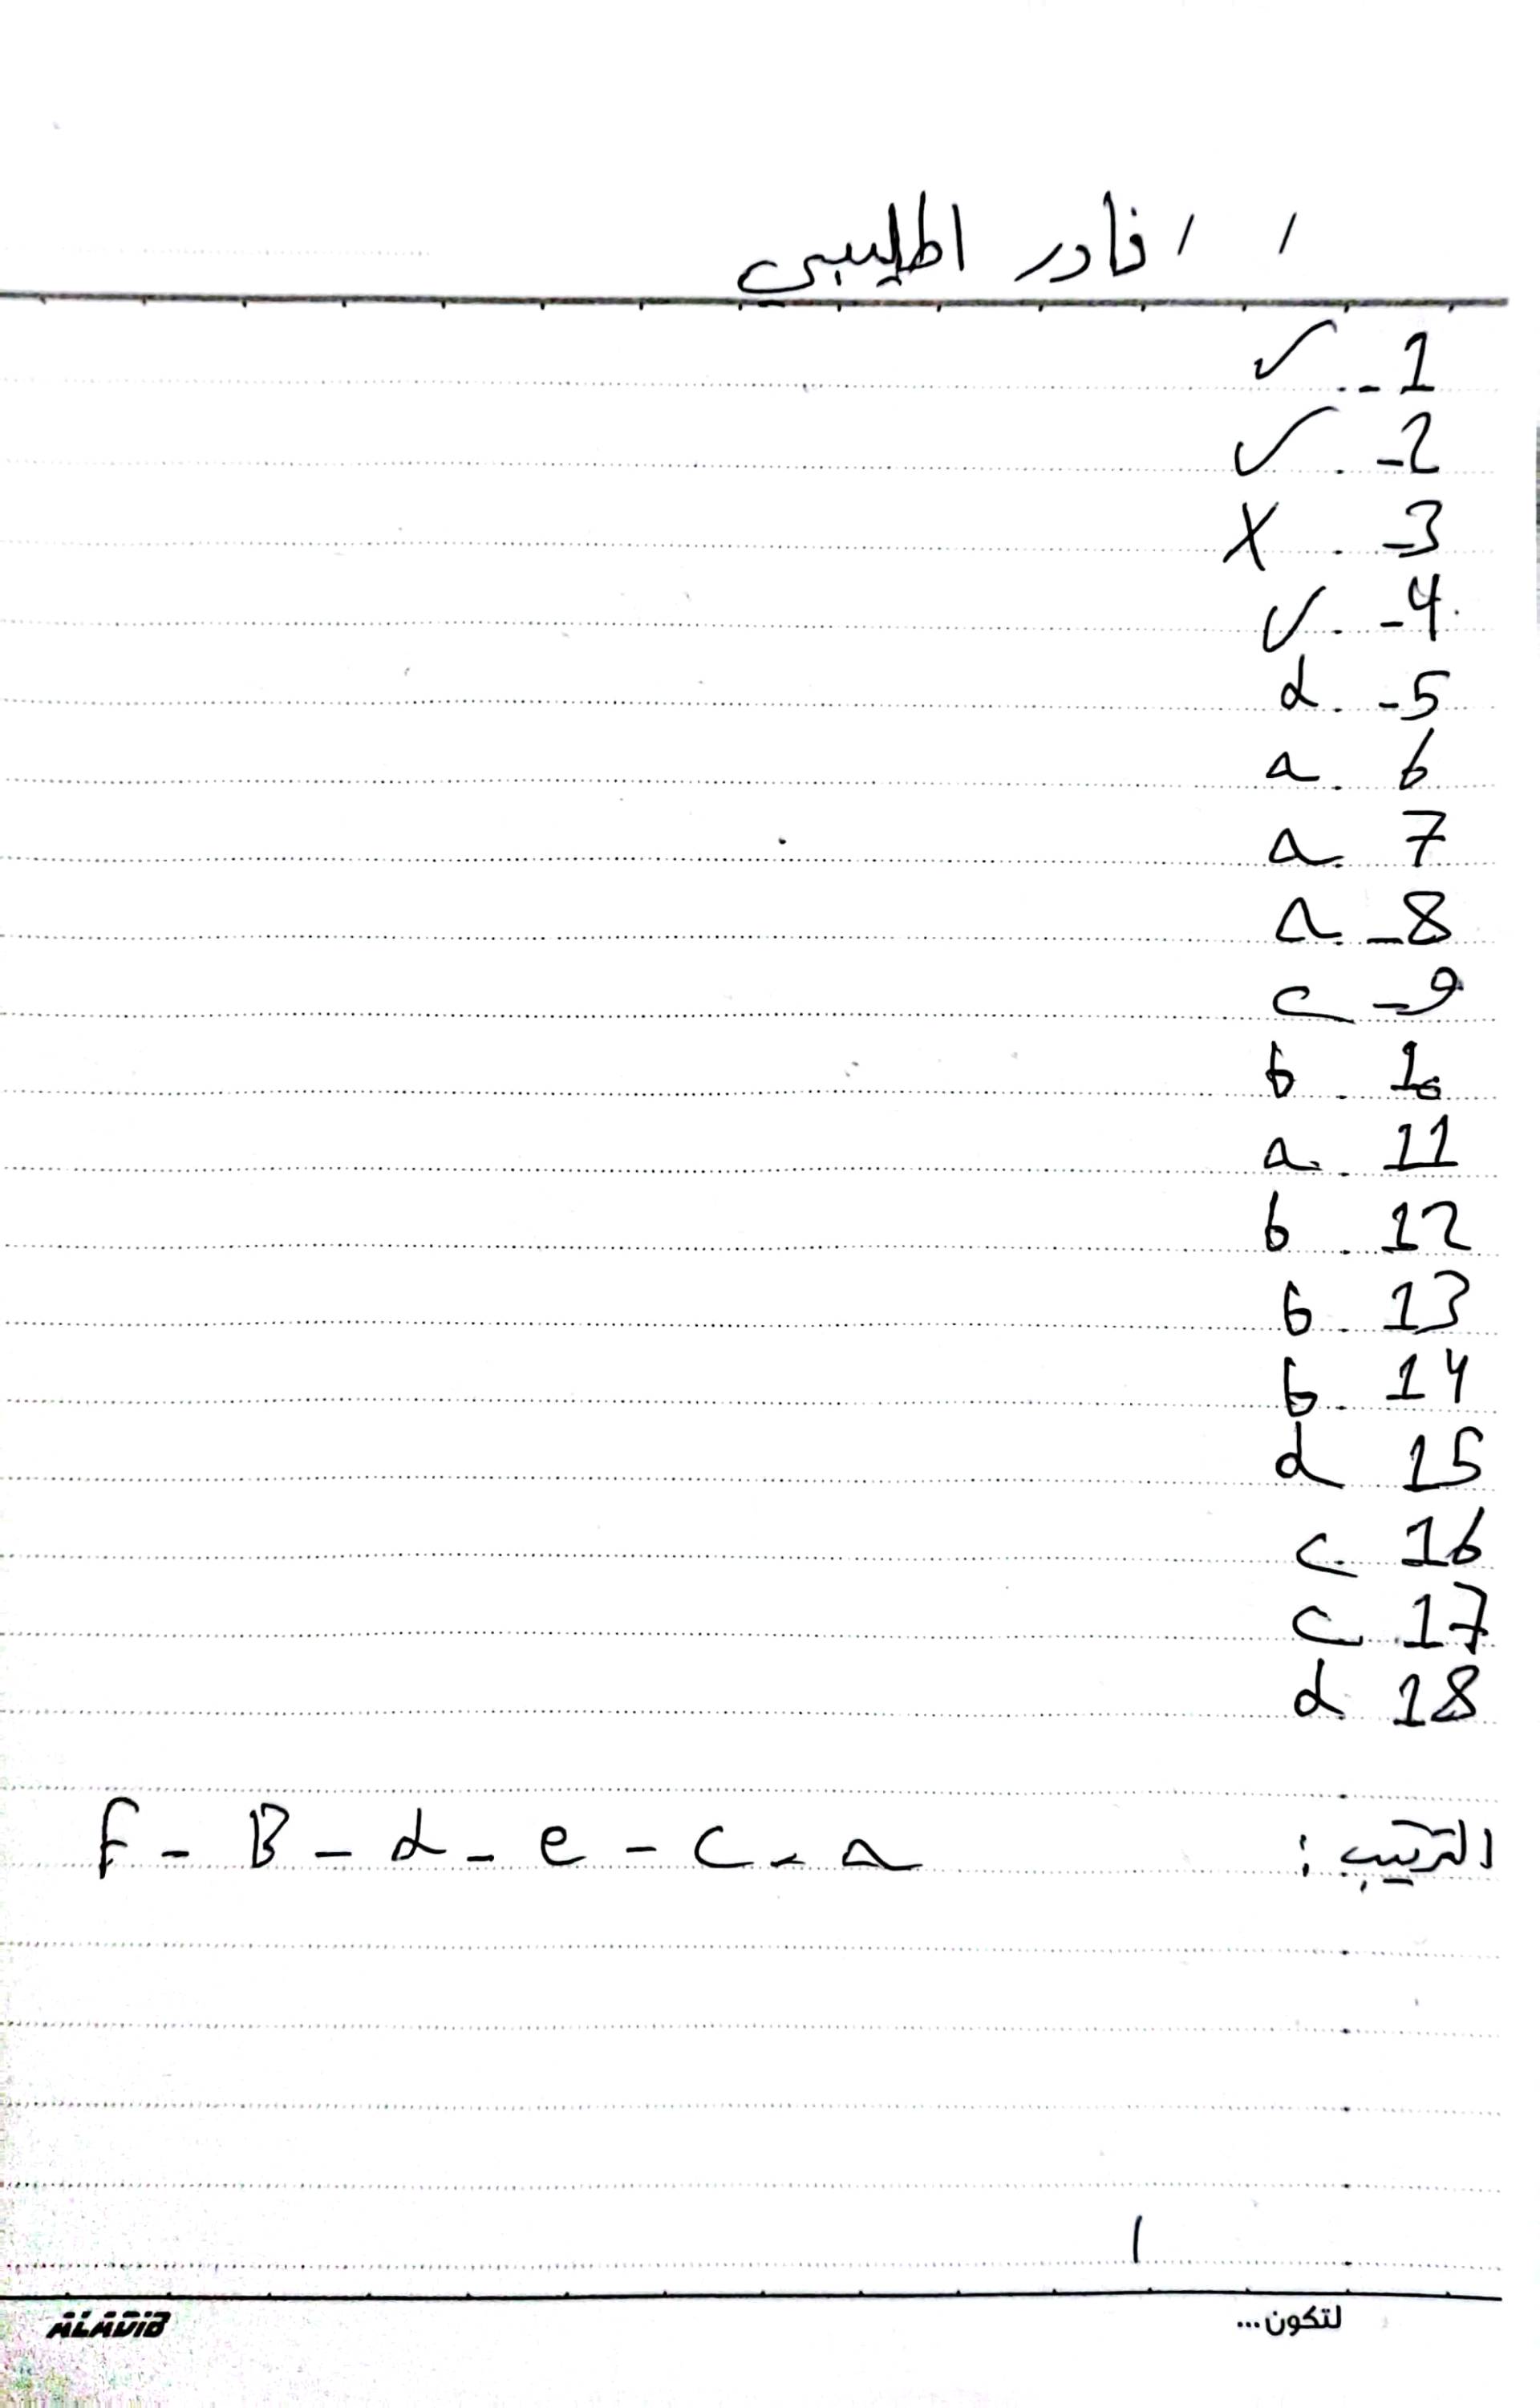 / / قادر اطليبي
1 - ✓
2 - ✓
3 - X
4 - ✓
5 - d
6 a
7 a
8 - a
9 - c
10 b
11 a
12 b
13 b
14 b
15 d
16 c
17 c
18 d
الترتيب : F - B - d - e - c - a
ALADIB لتكون...